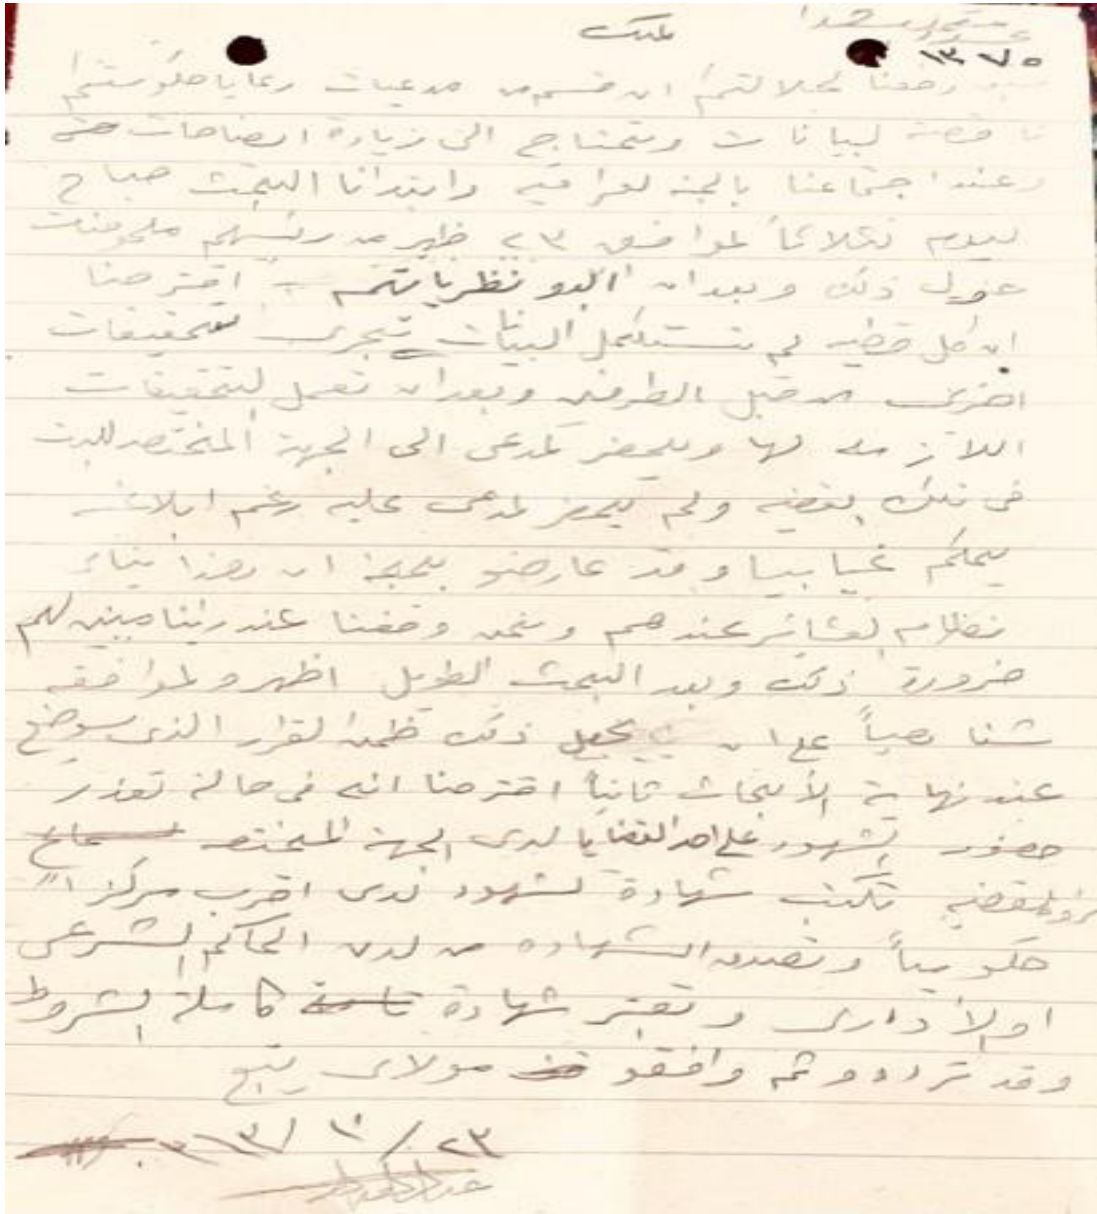 ملك
١٣٧٥
رفعنا لجلالتكم ان قسم من مدعيات رعايا حكومتكم
ناقصة لبيانات وتحتاج الى زيادة ايضاحات حتى
وعند اجتماعنا بالجنه لعراقيه وابتدانا البحث صباح
ليوم ثلاثا لموافق ٢٣ ظهر من رئيسهم ملحوضات
حول ذلك وبعد ان ابدو نظرياتهم اقترحنا
ان كل قضيه لم تستكمل البيانات تجرى تحقيقات
اخرى من قبل الطرفين وبعد ان تعمل لتحقيقات
اللازمه لها ويحضر لمدعى الى الجهة المختصه للبت
فى تلك لقضيه ولم يحضر لمدعى عليه رغم ابلاغه
يحكم غيابيا وقد عارضو بحجة ان هذا ينافى
نظام لعشاير عندهم ونحن وقفنا عند راينا مبينين لهم
ضرورة ذلك وبعد البحث الطويل اظهرو لموافقه
شفاهياً على ان يجعل ذلك ظمن لقرار الذى سيوضع
عند نهاية الأبحاث ثانياً اقترحنا انه فى حالة تعذر
حضور لشهور على احد القضايا لدى الجهة المختصه
تكتب شهادة لشهود لدى اقرب مركز
حكومياً وتصدق الشهاده من لدن الحاكم لشرعى
او الأدارى وتعتبر شهادة كاملة لشروط
وقد تردد و ثم وافقو مولاى يتبع
٢٣/١٠/١٣